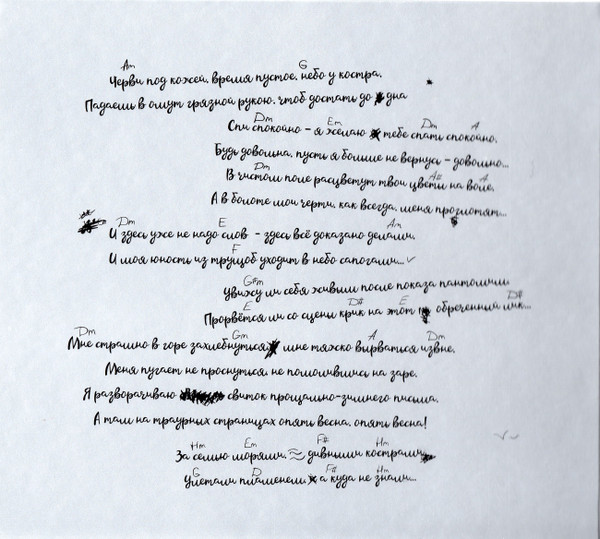 Am G
Черви под кожей, время пустое, небо у костра,
Падаешь в омут грязной рукою, чтоб достать до дна
Dm Em Dm A
Спи спокойно - я желаю тебе спать спокойно,
Будь довольна, пусть я больше не вернусь - довольно...
Dm A# A
В чистом поле расцветут твои цветы на воле,
А в болоте мои черти, как всегда, меня проглотят...
Dm E Am
И здесь уже не надо слов - здесь всё доказано делами,
F
И моя юность из трущоб уходит в небо сапогами...
G#m
Увижу ли себя живым после показа пантомимы
E D# E D#
Прорвётся ли со сцены крик на этот обреченный лик...
Dm Gm A Dm
Мне страшно в горе захлебнуться мне тяжко вырваться извне,
Меня пугает не проснуться, не помолившись на заре,
Я разворачиваю свиток прощально-зимнего письма,
А там на траурных страницах опять весна, опять весна!
Hm Em F# Hm
За семью морями, ≈ дивными кострами
G D F# Hm
Улетали пламенем, а куда не знали...